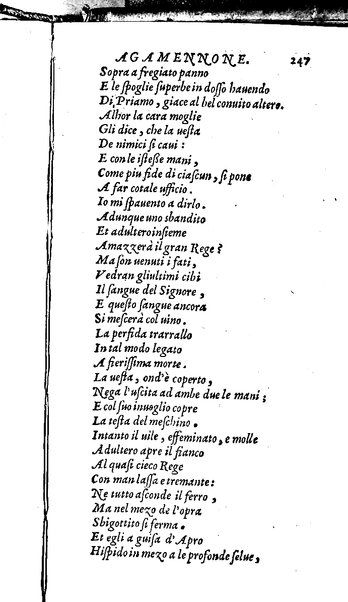 AGAMENNONE. 247
Sopra a fregiato panno
E le ſpoglie ſuperbe in doſſo hauendo
Di Priamo, giace al bel conuito altero.
Alhor la cara moglie
Gli dice, che la ueſta
De nimici ſi caui:
E con le iſteſſe mani,
Come piu fide di ciaſcun, ſi pone
A far cotale ufficio.
Io mi ſpauento a dirlo.
Adunque uno sbandito
Et adultero inſieme
Amazzerà il gran Rege?
Ma ſon uenuti i fati,
Vedran gliultimi cibi
Il ſangue del Signore,
E queſto ſangue ancora
Si meſcerà col uino.
La perfida trarrallo
In tal modo legato
A fieriſſima morte.
La ueſta, ond'è coperto,
Nega l'uſcita ad ambe due le mani;
E col ſuo inuoglio copre
La teſta del meſchino.
Intanto il uile, effeminato, e molle
Adultero apre il fianco
Al quaſi cieco Rege
Con man laſſa e tremante:
Ne tutto aſconde il ferro,
Ma nel mezo de l'opra
Sbigottito ſi ferma.
Et egli a guiſa d'Apro
Hiſpido in mezo a le profonde ſelue,